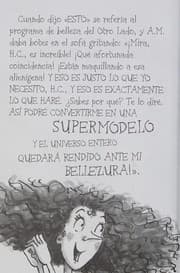 CUANDO DIJO «ESTO» SE REFERÍA AL
PROGRAMA DE BELLEZA DEL OTRO LADO, Y A.M.
DABA BOTES EN EL SOFÁ GRITANDO: «¡MIRA,
H.C., ES INCREÍBLE! ¡QUÉ AFORTUNADA
COINCIDENCIA! ¡ESTÁN MAQUILLANDO A ESA
ALIENÍGENA! Y ESO ES JUSTO LO QUE YO
NECESITO, H.C., Y ESO ES EXACTAMENTE
LO QUE HARÉ. ¿SABES POR QUÉ? TE LO DIRÉ.
ASÍ PODRÉ CONVERTIRME EN UNA
SUPERMODELO
Y EL UNIVERSO ENTERO
QUEDARÁ RENDIDO ANTE MI
BELLEZURA!».